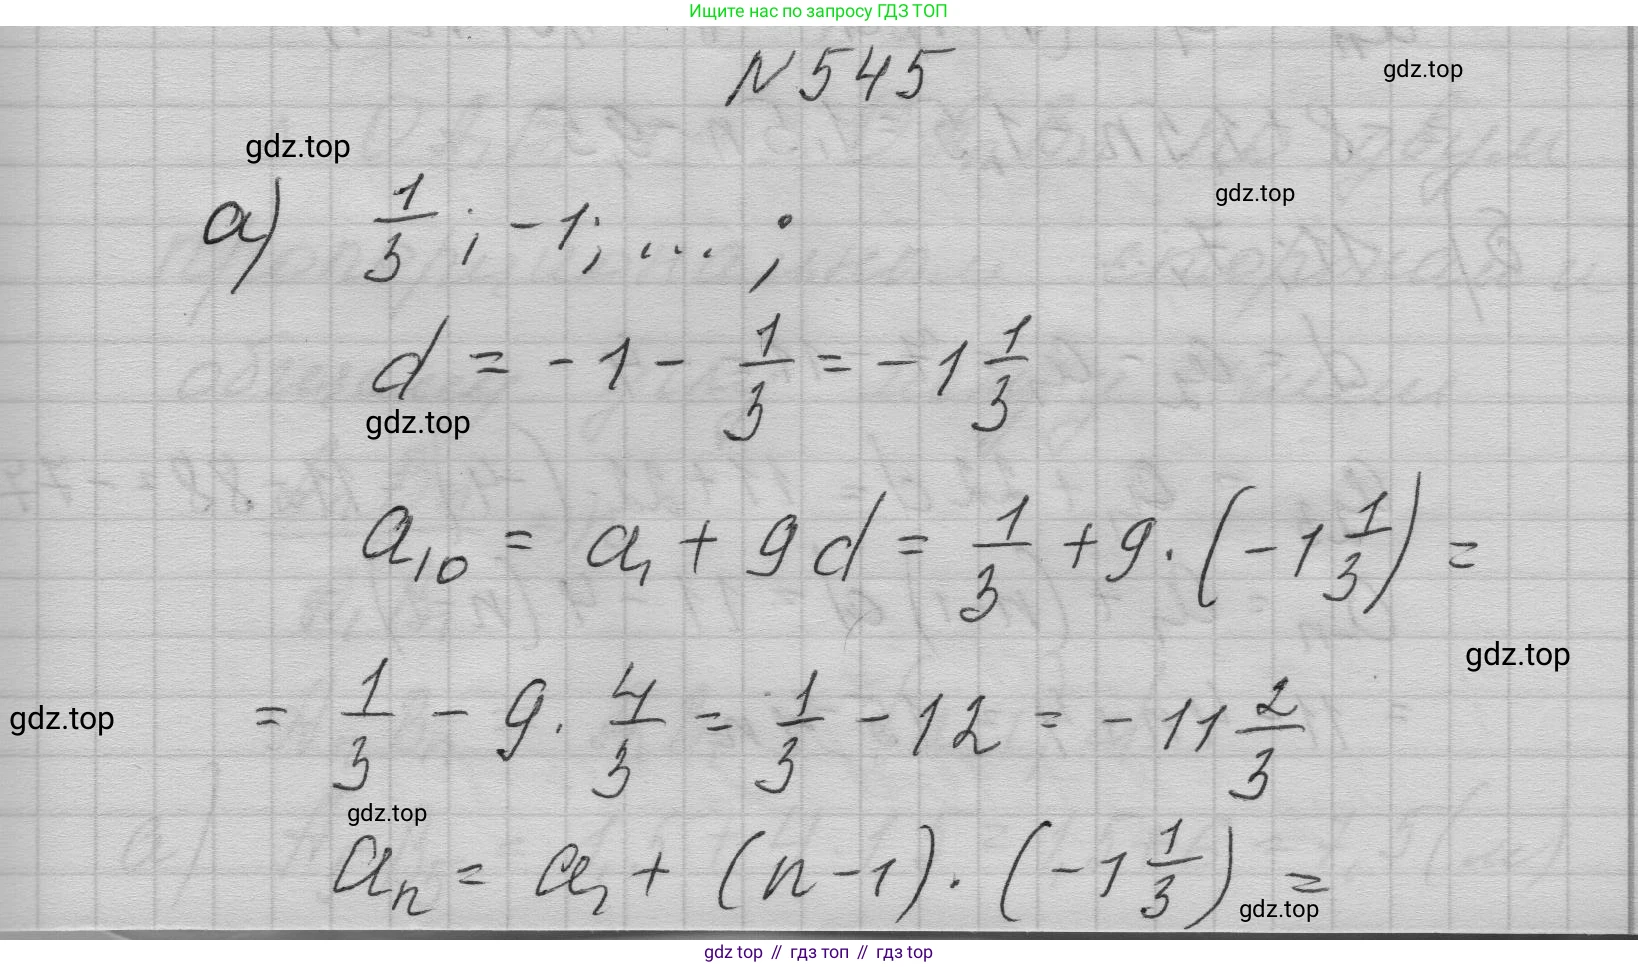 Ищите нас по запросу ГДЗ ТОП
№545
gdz.top
gdz.top
gdz.top
а) 1/3; -1; ... ;
d = -1 - 1/3 = -1 1/3
gdz.top
a₁₀ = a₁ + 9d = 1/3 + 9 · (-1 1/3) =
gdz.top
= 1/3 - 9 · 4/3 = 1/3 - 12 = -11 2/3
gdz.top
gdz.top
aₙ = a₁ + (n - 1) · (-1 1/3) =
gdz.top
gdz top // гдз топ // гдз top